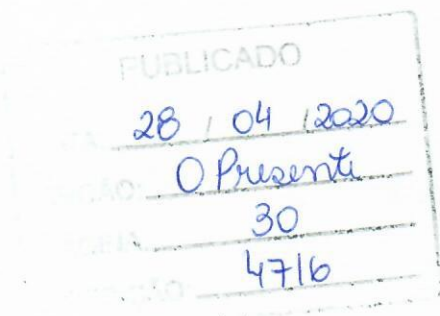 PUBLICADO
28 / 04 / 2020
O Presente
30
4716